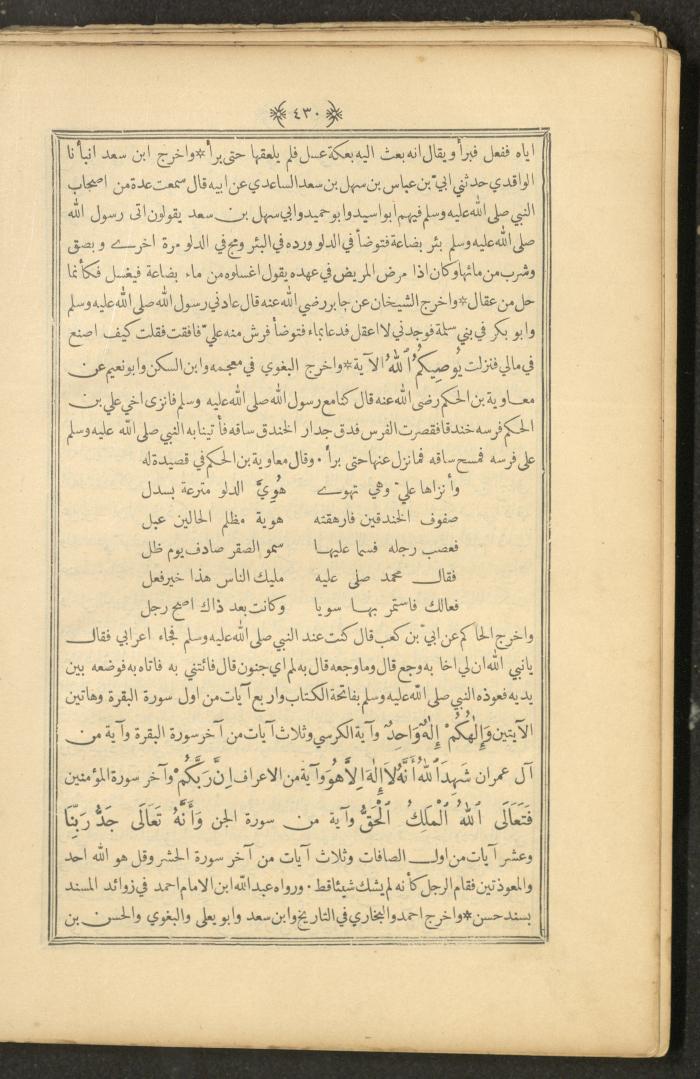 ٤٣٠
اياه ففعل فبرأ ويقال انه بعث اليه بعكة عسل فلم يلعقها حتى برأ * واخرج ابن سعد انبأنا
الواقدي حدثني ابيّ بن عباس بن سهل بن سعد الساعدي عن ابيه قال سمعت عدة من اصحاب
النبي صلى الله عليه وسلم فيهم ابو اسيد وابو حميد وابي سهل بن سعد يقولون اتى رسول الله
صلى الله عليه وسلم بئر بضاعة فتوضأ في الدلو ورده في البئر ومج في الدلو مرة اخرى وبصق
وشرب من مائها وكان اذا مرض المريض في عهده يقول اغسلوه من ماء بضاعة فيغسل فكأنما
حل من عقال * واخرج الشيخان عن جابر رضي الله عنه قال عادني رسول الله صلى الله عليه وسلم
وابو بكر في بني سلمة فوجدني لا اعقل فدعا بماء فتوضأ فرش منه عليّ فافقت فقلت كيف اصنع
في مالي فنزلت يُوصِيكُمُ ٱللهُ الآية * واخرج البغوي في معجمه وابن السكن وابو نعيم عن
معاوية بن الحكم رضى الله عنه قال كنا مع رسول الله صلى الله عليه وسلم فانزى اخي علي بن
الحكم فرسه خندقا فقصرت الفرس فدق جدار الخندق ساقه فأتينا به النبي صلى الله عليه وسلم
على فرسه فمسح ساقه فما نزل عنها حتى برأ ٠ وقال معاوية بن الحكم في قصيدة له
وأنزاها عليّ وهي تهوى هُوِيَّ الدلو مترعة بسدل
صفوف الخندقين فارهقته هوية مظلم الحالين عبل
فعصب رجله فسما عليها سمو الصقر صادف يوم ظل
فقال محمد صلى عليه مليك الناس هذا خير فعل
فعالك فاستمر بها سويا وكانت بعد ذاك اصح رجل
واخرج الحاكم عن ابيّ بن كعب قال كنت عند النبي صلى الله عليه وسلم فجاء اعرابي فقال
يا نبي الله ان لي اخا به وجع قال وما وجعه قال به لمم اي جنون قال فائتني به فاتاه به فوضعه بين
يديه فعوذه النبي صلى الله عليه وسلم بفاتحة الكتاب واربع آيات من اول سورة البقرة وهاتين
الآيتين وَإِلٰهُكُمْ إِلٰهٌ وَاحِدٌ وآية الكرسي وثلاث آيات من آخر سورة البقرة وآية من
آل عمران شَهِدَ ٱللهُ أَنَّهُ لَا إِلٰهَ إِلَّا هُوَ وآية من الاعراف إِنَّ رَبَّكُمْ وآخر سورة المؤمنين
فَتَعَالَى ٱللهُ ٱلْمَلِكُ ٱلْحَقُّ وآية من سورة الجن وَأَنَّهُ تَعَالَى جَدُّ رَبِّنَا
وعشر آيات من اول الصافات وثلاث آيات من آخر سورة الحشر وقل هو الله احد
والمعوذتين فقام الرجل كأنه لم يشك شيئا قط ٠ ورواه عبد الله ابن الامام احمد في زوائد المسند
بسند حسن * واخرج احمد والبخاري في التاريخ وابن سعد وابو يعلى والبغوي والحسن بن